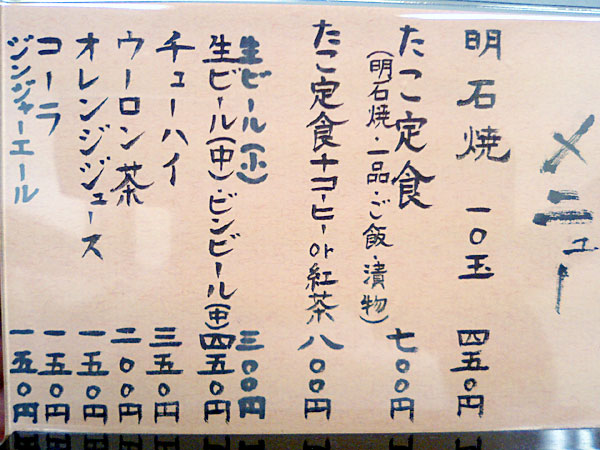 メニュー
明石焼 一〇玉 四五〇円
たこ定食 七〇〇円
(明石焼・一品・ご飯・漬物)
たこ定食+コーヒーor紅茶 八〇〇円
生ビール(小) 三〇〇円
生ビール(中)・ビンビール(中) 四五〇円
チューハイ 三五〇円
ウーロン茶 二〇〇円
オレンジジュース 一五〇円
コーラ 一五〇円
ジンジャーエール 一五〇円